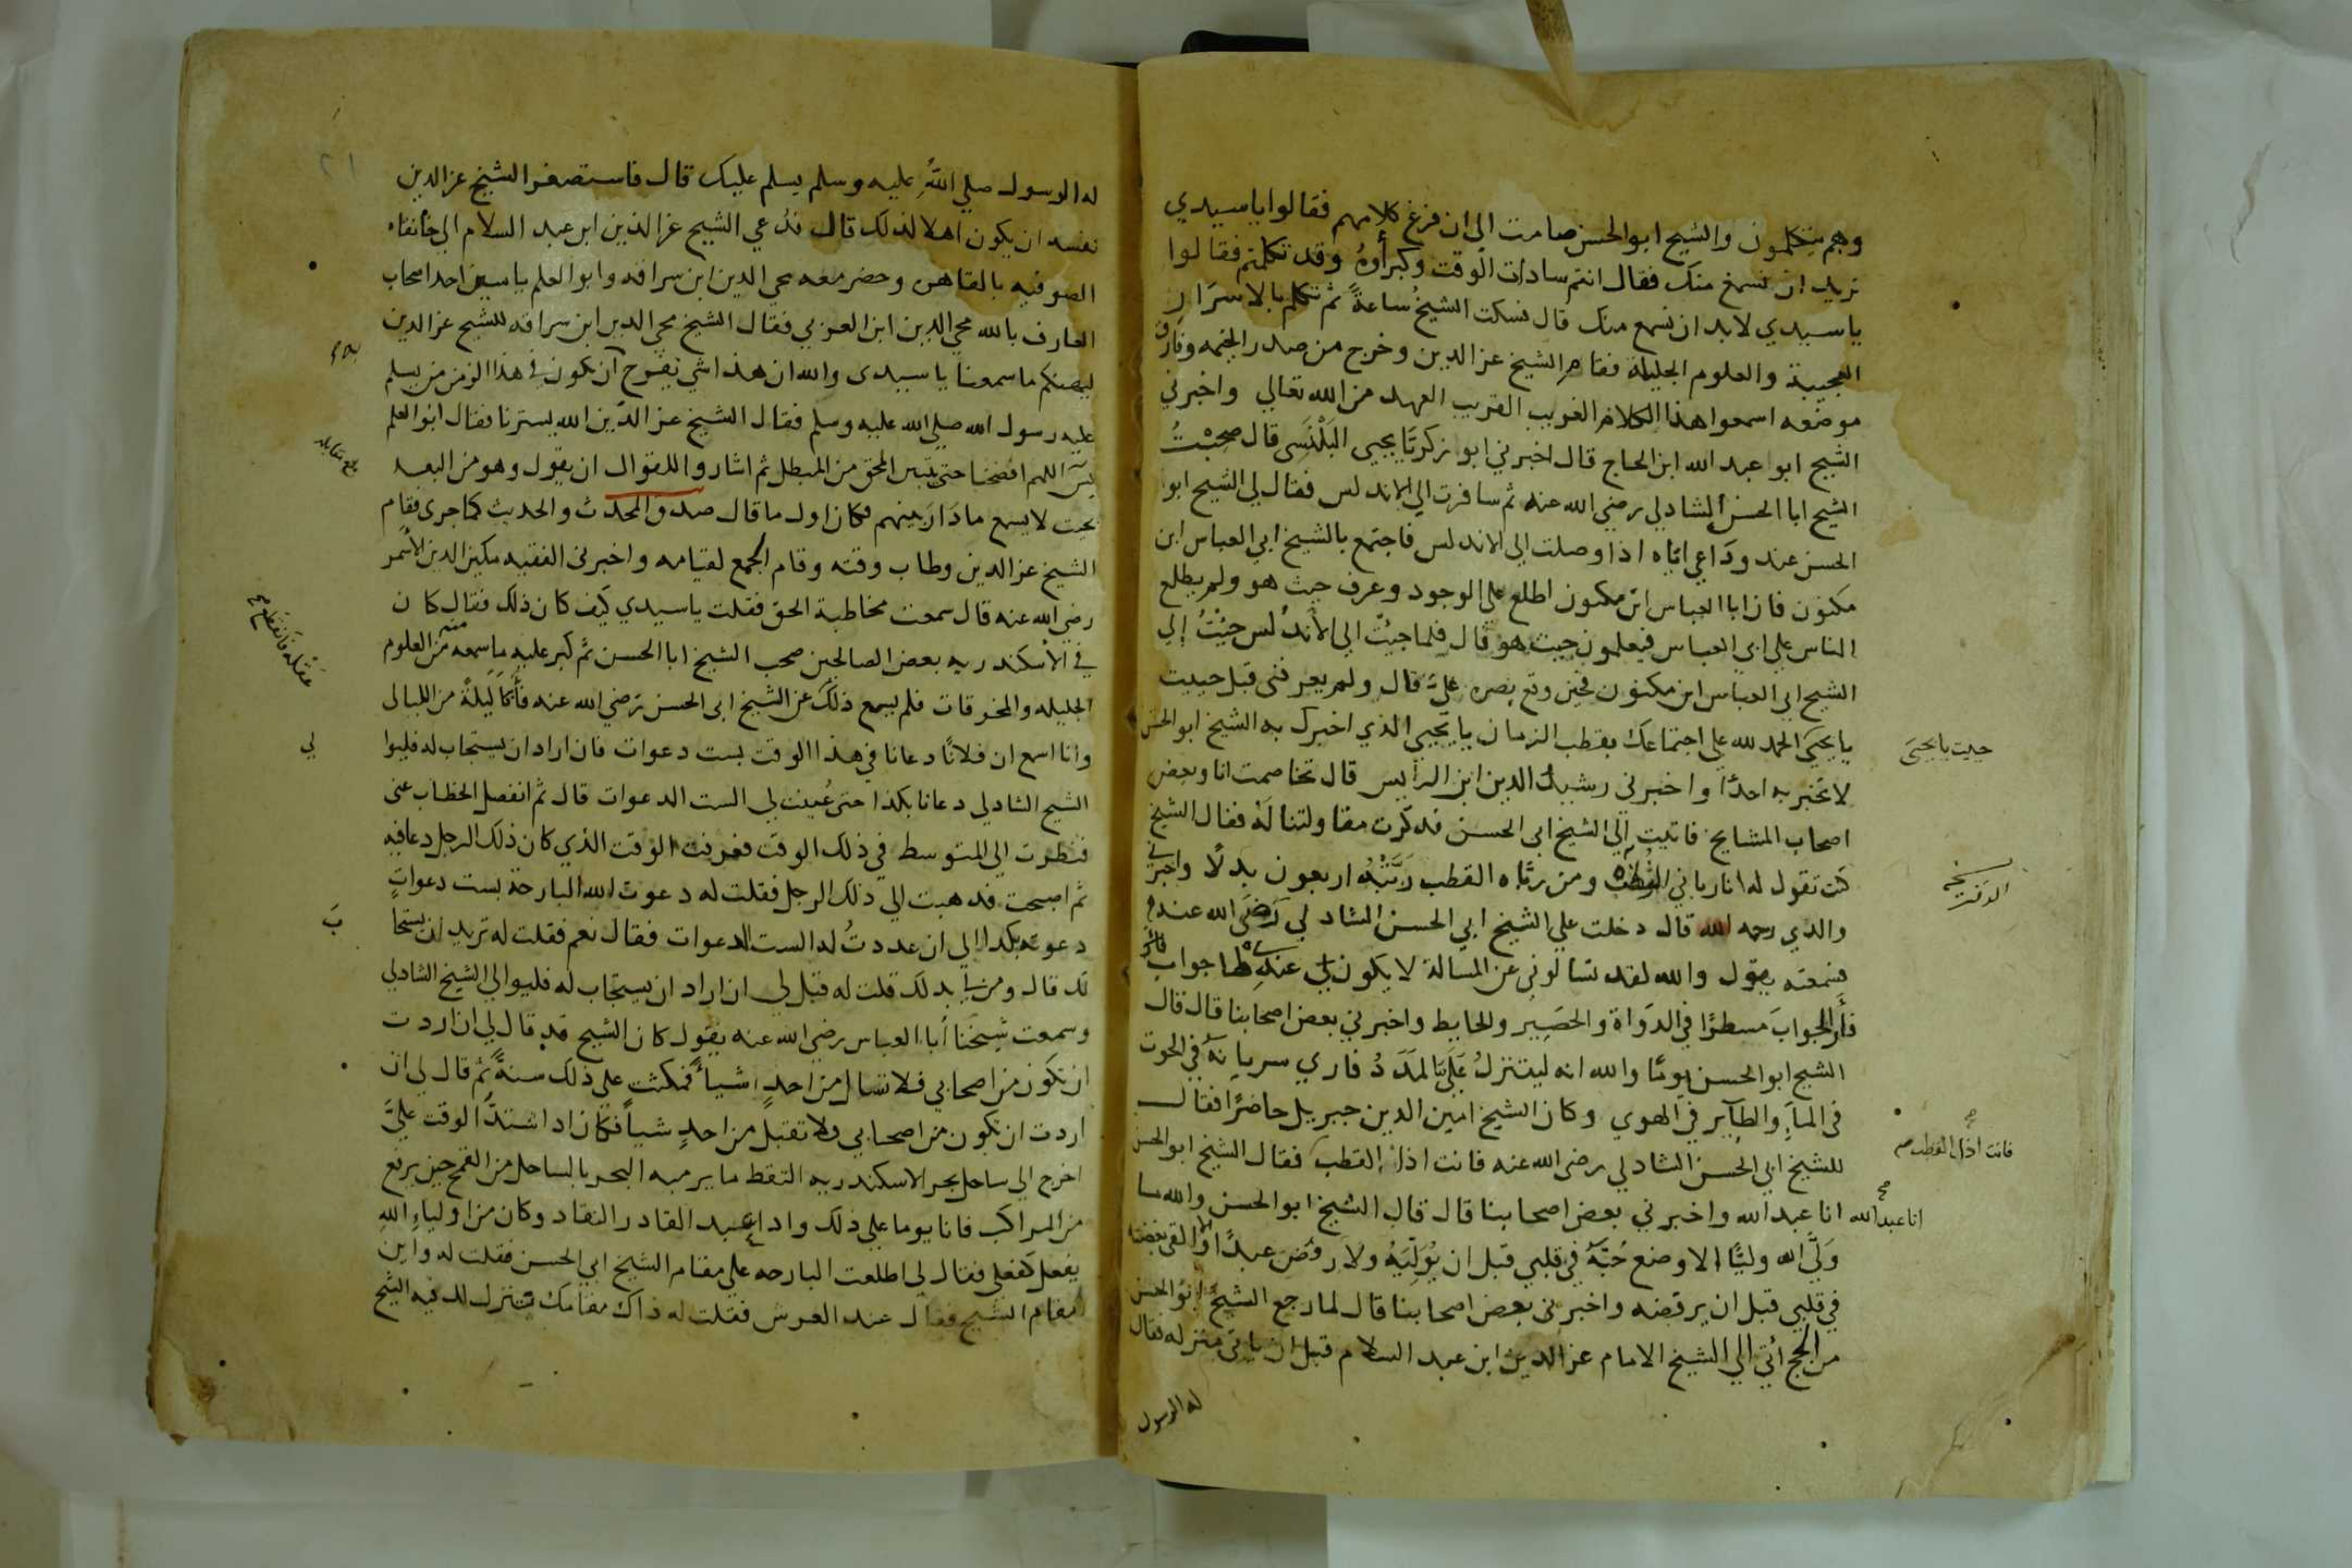 وهم يتكلمون والشيخ ابو الحسن صامت الى ان فرغ كلامهم فقالوا يا سيدي
نريد ان نسمع منك فقال انتم سادات الوقت وكبراؤه وقد تكلمتم فقالوا
يا سيدي لا بد ان نسمع منك قال فسكت الشيخ ساعةً ثم تكلم بالاسرار
العجيبة والعلوم الجليلة فقام الشيخ عز الدين وخرج من صدر الخيمه وفارق
موضعه اسمعوا هذا الكلام الغريب القريب العهد من الله تعالي واخبرني
الشيخ ابو عبد الله ابن الحاج قال اخبرني ابو زكريَّا يحيى البَلْنَسى قال صَحِبْتُ
الشيخ ابا الحسن الشادلي رضي الله عنه ثم سافرت الي الاندلس فقال لي الشيخ ابوا
الحسن عند وَدَاعي اياه اذا وصلت الى الاندلس فاجتمع بالشيخ ابي العباس ابن
مكنون فان ابا العباس ابن مكنون اطلع على الوجود وعرف حيث هو ولم يطلع
الناس علي ابي العباس فيعلمون حيث هو قال فلما جيُتُ الى الأندلس جِيْتُ إلي
الشيخ ابي العباس ابن مكنون فحين وقع بصره عليَّ قال ولم يعرفنى قبل جييت
يا يحيَى الحمد لله على اجتماعك بقطب الزمان يا يحيي الذي اخبرك به الشيخ ابو الحسن
جيت يا يحيَى
لا تخبر به احدًا واخبرني رشيد الدين ابن الرايس قال تخاصمت انا وبعض
اصحاب المشايخ فاتيت إلي الشيخ ابى الحسن فذكرت مقاولتنا لَهُ فقال الشيخ
كنت تقول له انا رباني القطب ومن ربَّاه القطب رَبَّتْهُ اربعون بدلًا واخبرني
نسخه
والدي رحمه الله قال دخلت علي الشيخ ابي الحسن الشادلي رَضيَ الله عنه
فسمعته يقول والله لقد تسالوني عن المسالة لا يكون لي عندها جواب
فأرَي الجوابَ مسطرًا في الدَوَاة والحَصَيِر والحايط واخبرني بعض اصحابنا قال قال
الشيخ ابو الحسن يومًا والله انه ليتنزلُ عَلَيَّ المَدَدُ فاري سريانَهُ في الحوت
في المآءِ والطآير في الهوي وكان الشيخ امين الدين جبريل حاضرًا فقال
للشيخ ابي الحسن الشادلي رضى الله عنه فانت اذا القطب فقال الشيخ ابو الحسن
فانت اذا القطب صح
انا عبد الله واخبرني بعض اصحابنا قال قال الشيخ ابو الحسن والله ما
انا عبد الله صح
وَلَّي الله وليًّا الا وضع حُبَّهُ في قلبي قبل ان يُوَلِّيَهُ ولا رفض عبدًا الا والقى بغضه
في قلبي قبل ان يرفضه واخبرنى بعض اصحابنا قال لما رجع الشيخ ابو الحسن
من الحج اتي الي الشيخ الامام عز الدين ابن عبد السلام قبل ان ياتى منزله فقال
له الرسول
٢١
له الرسول صلي اللهُ عليه وسلم يسلم عليك قال فاستصغر الشيخ عز الدين
نفسه ان يكون اهلا لذلك قال فدُعي الشيخ عز الدين ابن عبد السلام الي خانقاه
الصوفيه بالقاهره وحضر معه محي الدين ابن سراقه وابو العلم ياسين احد اصحاب
العارف بالله محي الدين ابن العزبي فقال الشيخ محي الدين ابن سراقه للشيخ عز الدين
ليهنكم ما سمعنا يا سيدى والله ان هذا شي نفرح ان يكون في هذا الزمن من يسلم
به
عليه رسول الله صلي الله عليه وسلم فقال الشيخ عز الدّين الله يسترنا فقال ابو العلم
يسَ اللهم افضحنا حتى يتبين المحق من المبطل ثم اشاروا للقوال ان يقول وهو من البعد
بلغ مقابله
بحيت لا يسمع ما دَارَ بينهم فكان اول ما قال صدق المحدث والحديث كما جرى فقام
الشيخ عز الدين وطاب وقته وقام الجمع لقيامه واخبرنى الفقيه مكين الدين الأسمر
رضي الله عنه قال سمعت مخاطبة الحق فقلت يا سيدي كيف كان ذلك فقال كان
في الأسكندريه بعض الصالحين صحب الشيخ ابا الحسن ثم كبر عليه ما سمعه منه من العلوم
عَقْلَهُ فَانقطع
الجليله والمخرقات فلم يسع ذلك عن الشيخ ابى الحسن رَضي الله عنه فأنَا ليلةً من الليالى
وانا اسمع ان فلانًا دعانا في هذا الوقت بست دعوات فان اراد ان يستجاب له فليوا
لي
الشيخ الشادلي دعانا بكذا حتى عُينت لي الست الدعوات قال ثم انفصل الخطاب عنى
فنظرت الى المتوسط في ذلك الوقت فعرفت الوقت الذي كان ذلك الرجل دعا فيه
ثم اصبحت فدهبت الي ذلك الرجل فقلت له دعوت الله البارحة بست دعواتٍ
دعوته بكدا الي ان عددتُ له الست الدعوات فقال نعم فقلت له تريد ان يستجا
بَ
لك قال ومن لي بدلك قلت له قيل لي ان اراد ان يستجاب له فليوا الي الشيخ الشادلي
وسمعت شيخَنا أبا العباس رضي الله عنه يقول كان الشيخ قد قال لي ان اردت
ان تكون من اصحابي فلا تسال من احدٍ شيأً فمكثت على ذلك سنةً ثم قال لى ان
اردت ان تكون من اصحابي ولا تقبل من احدٍ شياً فكان اذا اشتدَّ الوقت عليَّ
اخرج الى ساحل بحر الاسكندريه التقط ما يرميه البحر بالساحل من القمح حين يرفع
من المراكب فانا يوما على ذلك واذا عبد القادر النقاد وكان من اولياءِ اللهِ
يفعل كفعلى فقال لي اطلعت البارحه على مقام الشيخ ابي الحسن فقلت له واين
مقام الشيخ فقال عند العرش فقلت له ذاك مقامك تنزل لك فيه الشيخ